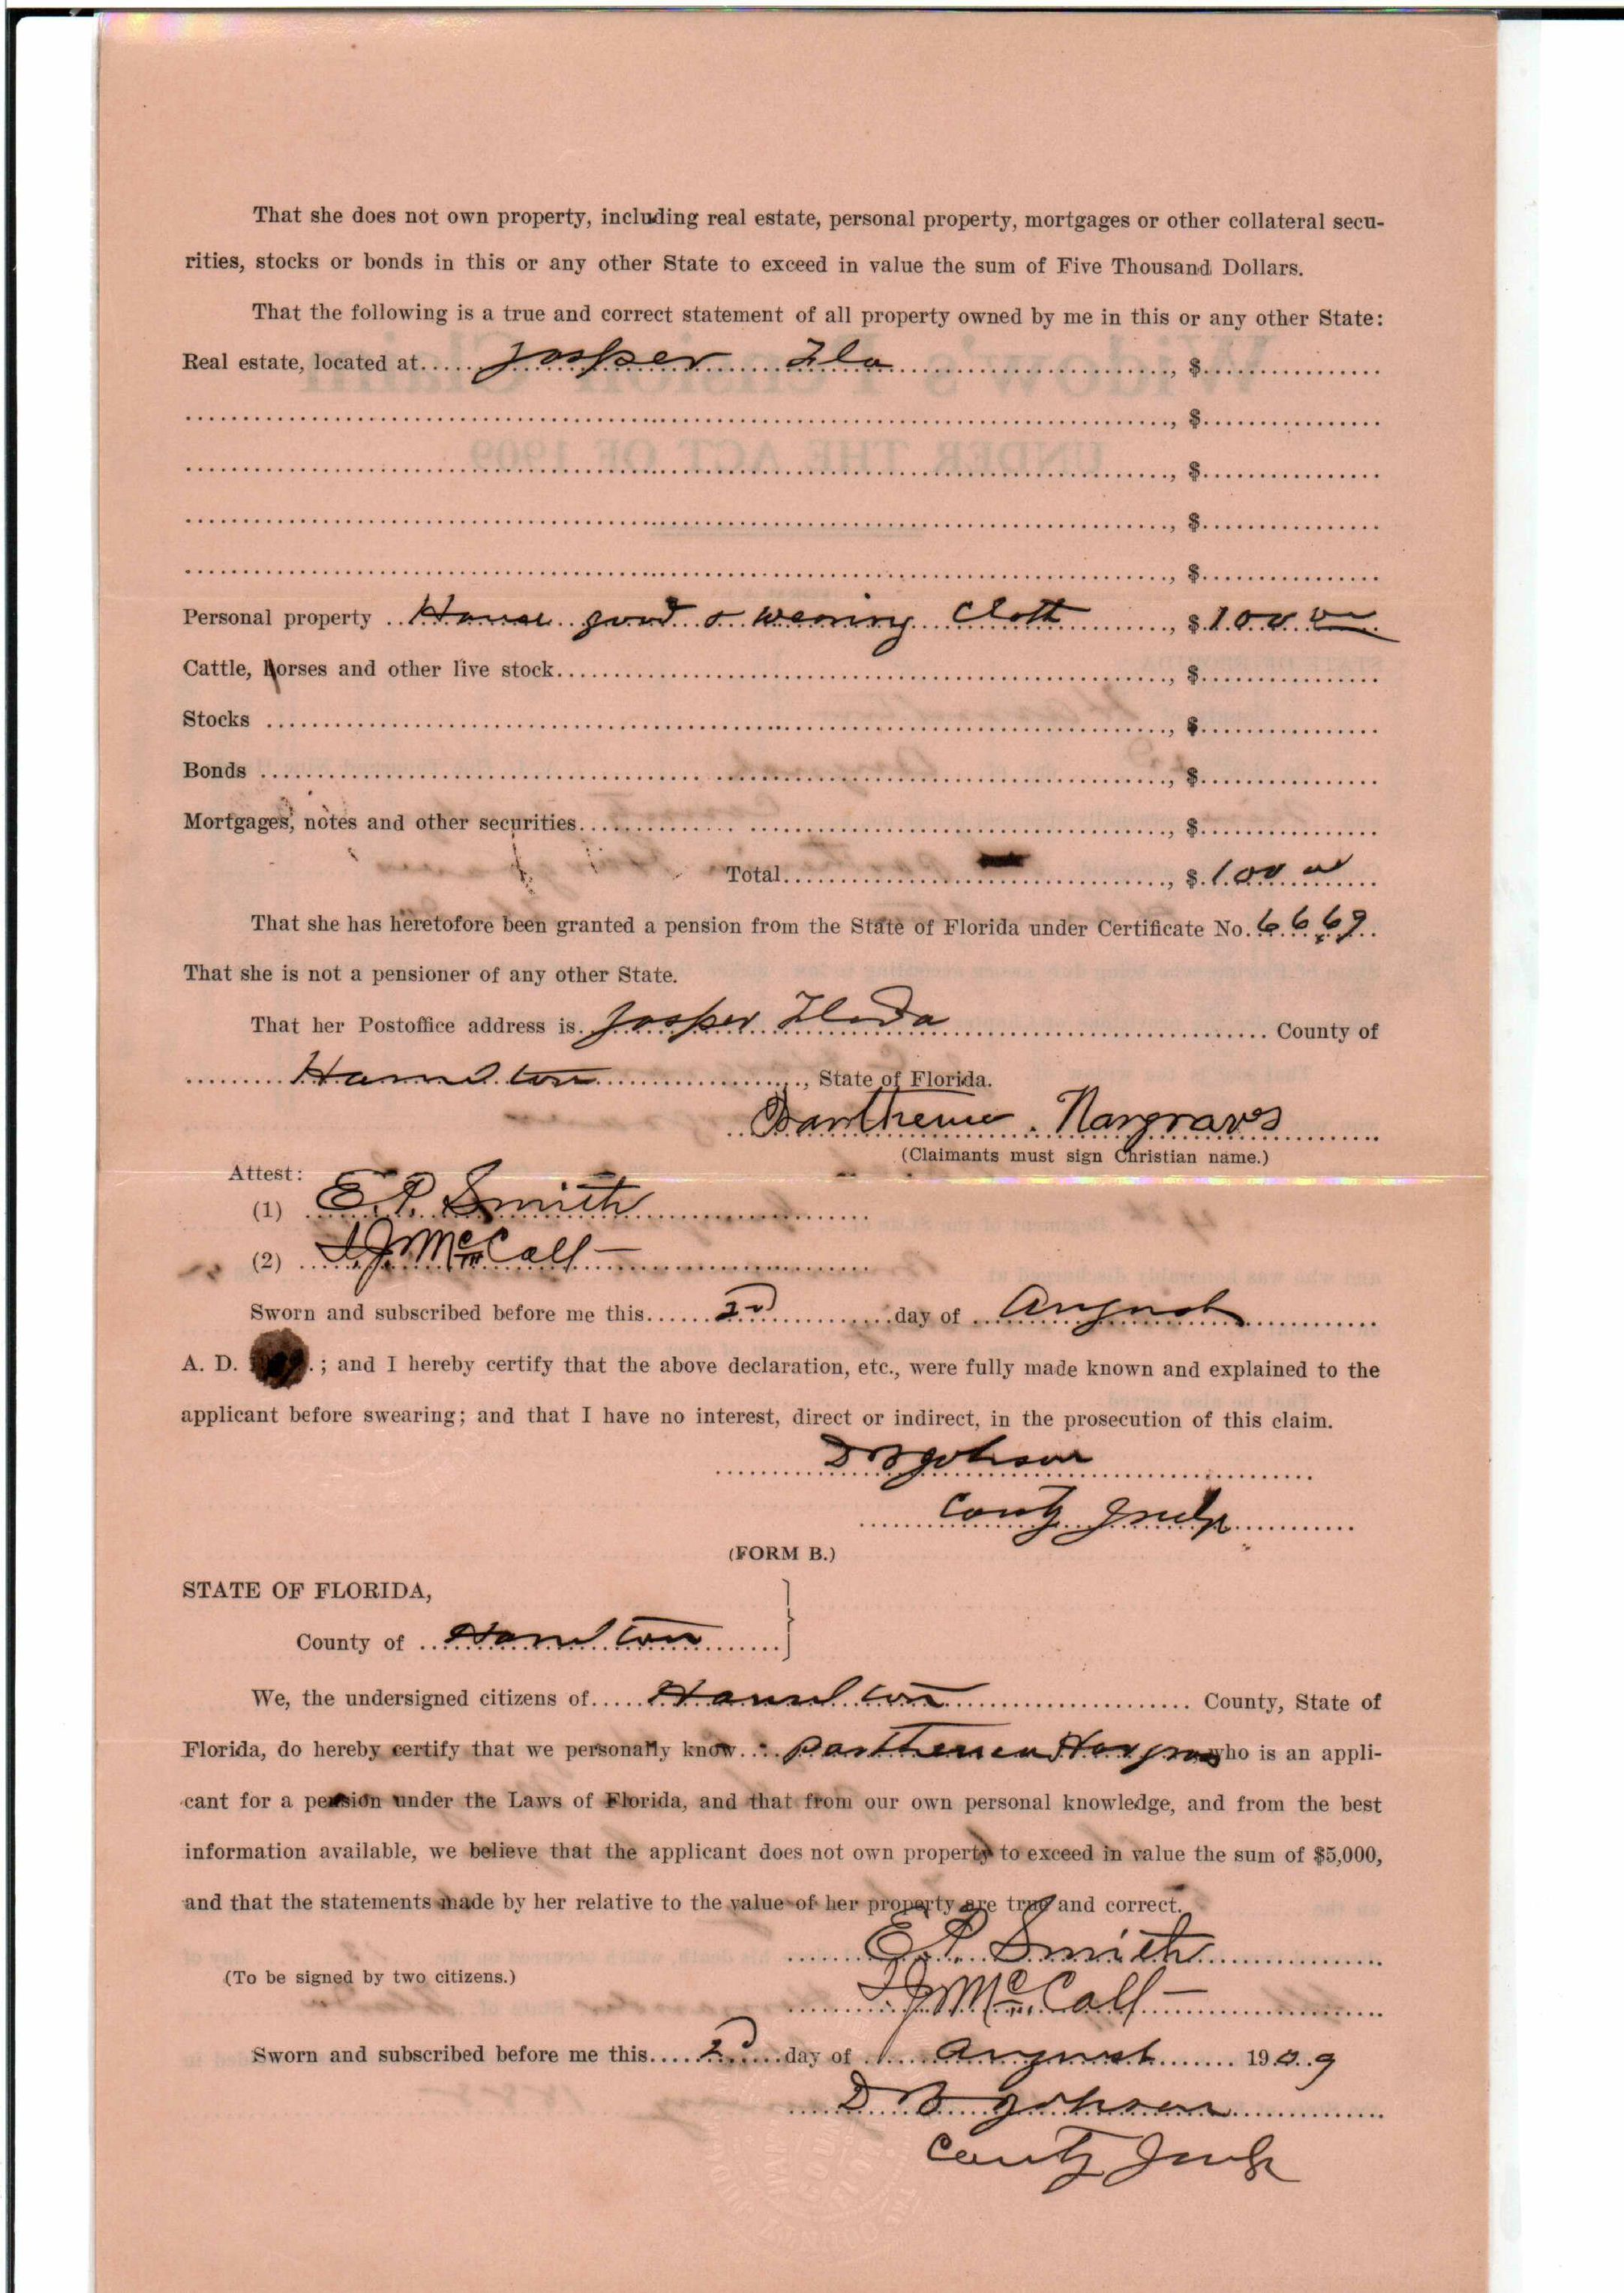 That she does not own property, including real estate, personal property, mortgages or other collateral secu-
rities, stocks or bonds in this or any other State to exceed in value the sum of Five Thousand Dollars.
That the following is a true and correct statement of all property owned by me in this or any other State:
Real estate, located at Jasper Fla, $
, $
, $
, $
, $
Personal property House good & wearing Cloth, $ 100 00
Cattle, horses and other live stock, $
Stocks, $
Bonds, $
Mortgages, notes and other securities, $
Total, $ 100 00
That she has heretofore been granted a pension from the State of Florida under Certificate No. 6669
That she is not a pensioner of any other State.
That her Postoffice address is Jasper County of
Hamilton, State of Florida.
Hargraves
(Claimants must sign Christian name.)
Attest:
(1) E.P. Smith
(2) McCall
Sworn and subscribed before me this 2d day of August
A. D. ; and I hereby certify that the above declaration, etc., were fully made known and explained to the
applicant before swearing; and that I have no interest, direct or indirect, in the prosecution of this claim.
D B Johnson
County Judge
(FORM B.)
STATE OF FLORIDA,
County of Hamilton
We, the undersigned citizens of Hamilton County, State of
Florida, do hereby certify that we personally know who is an appli-
cant for a pension under the Laws of Florida, and that from our own personal knowledge, and from the best
information available, we believe that the applicant does not own property to exceed in value the sum of $5,000,
and that the statements made by her relative to the value of her property are true and correct.
E.P. Smith
(To be signed by two citizens.)
McCall
Sworn and subscribed before me this 2d day of August 1909
D B Johnson
County Judge